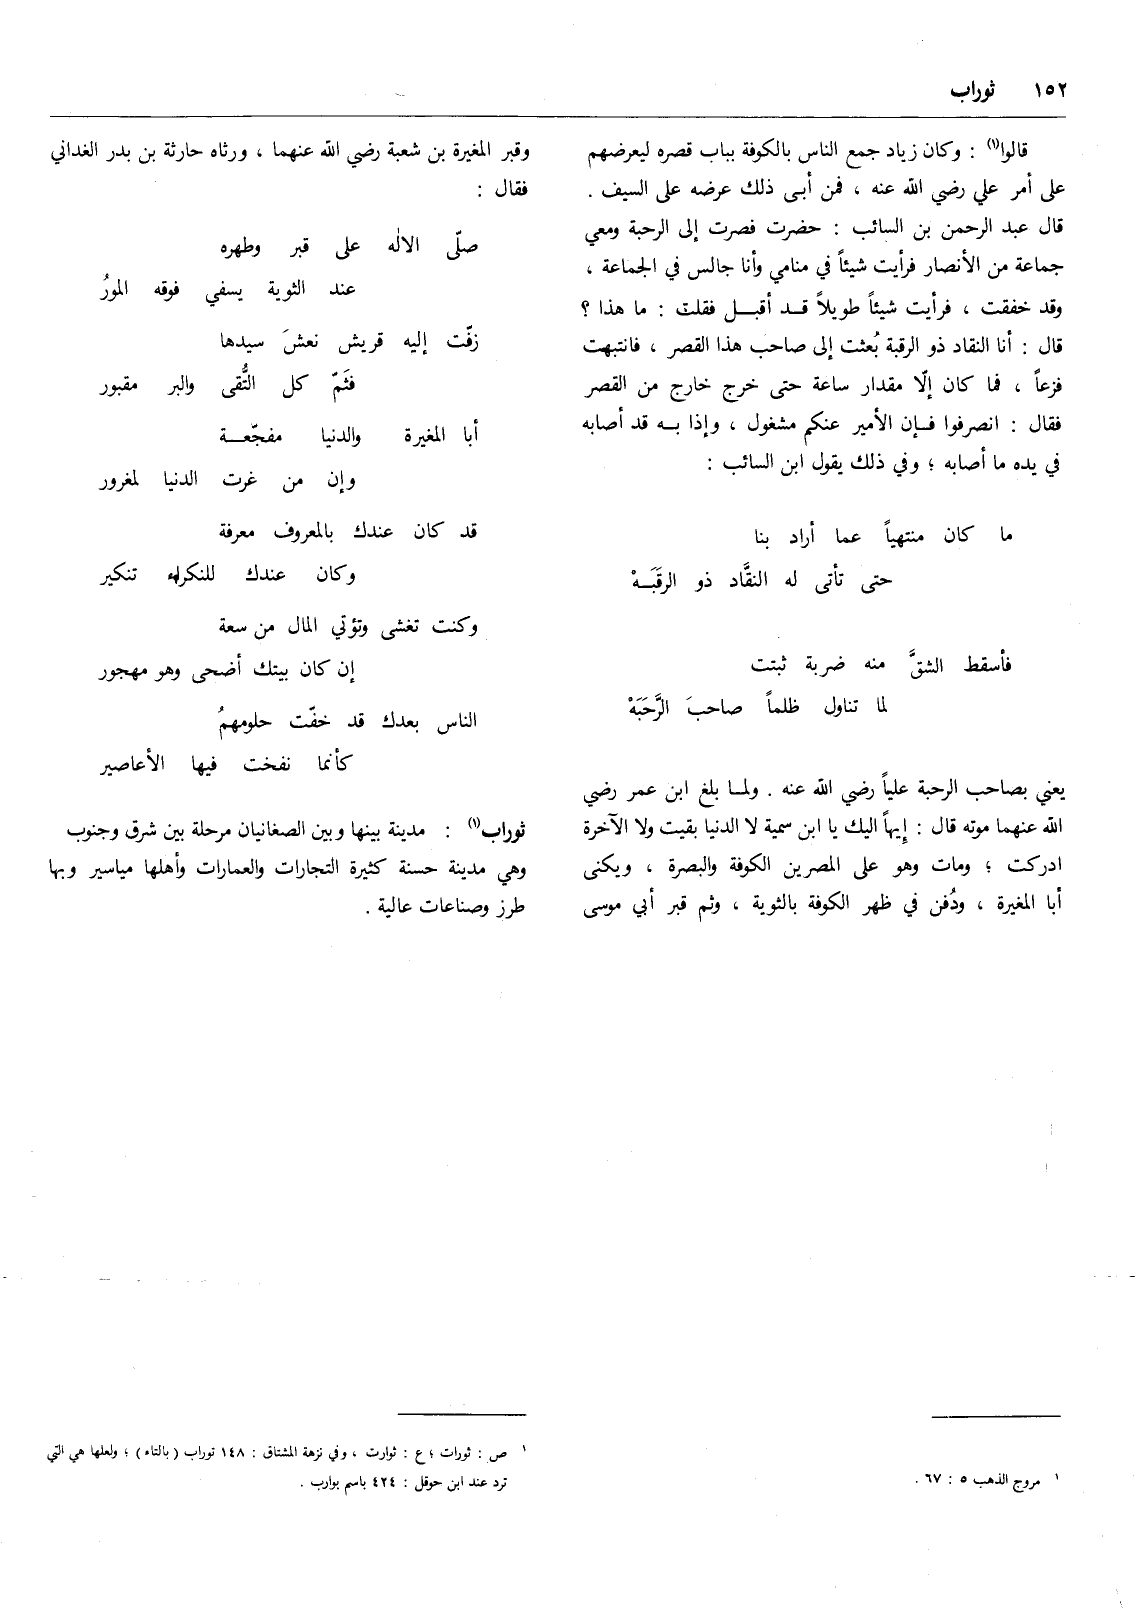 ١٥٢ ثوراب
قالوا(١) : وكان زياد جمع الناس بالكوفة بباب قصره ليعرضهم
على أمر علي رضي الله عنه ، فمن أبى ذلك عرضه على السيف .
قال عبد الرحمن بن السائب : حضرت فصرت إلى الرحبة ومعي
جماعة من الأنصار فرأيت شيئاً في منامي وأنا جالس في الجماعة ،
وقد خفقت ، فرأيت شيئاً طويلاً قد أقبل فقلت : ما هذا ؟
قال : أنا النقاد ذو الرقبة بُعثت إلى صاحب هذا القصر ، فانتبهت
فزعاً ، فما كان إلّا مقدار ساعة حتى خرج خارج من القصر
فقال : انصرفوا فإن الأمير عنكم مشغول ، وإذا به قد أصابه
في يده ما أصابه ؛ وفي ذلك يقول ابن السائب :
ما كان منتهياً عما أراد بنا
حتى تأتى له النقَّاد ذو الرقَبَهْ
فأسقط الشقَّ منه ضربة ثبتت
لما تناول ظلماً صاحبَ الرَّحَبَهْ
يعني بصاحب الرحبة علياً رضي الله عنه . ولما بلغ ابن عمر رضي
الله عنهما موته قال : إيهاً اليك يا ابن سمية لا الدنيا بقيت ولا الآخرة
ادركت ؛ ومات وهو على المصرين الكوفة والبصرة ، ويكنى
أبا المغيرة ، ودُفن في ظهر الكوفة بالثوية ، وثم قبر أبي موسى
١ مروج الذهب ٥ : ٦٧ .
وقبر المغيرة بن شعبة رضي الله عنهما ، ورثاه حارثة بن بدر الغداني
فقال :
صلّى الالٰه على قبر وطهره
عند الثوية يسفي فوقه المورُ
زفّت إليه قريش نعشَ سيدها
فثَمّ كل التُّقى والبر مقبور
أبا المغيرة والدنيا مفجّعة
وإن من غرت الدنيا لمغرور
قد كان عندك بالمعروف معرفة
وكان عندك للنكراء تنكير
وكنت تغشى وتؤتي المال من سعة
إن كان بيتك أضحى وهو مهجور
الناس بعدك قد خفّت حلومهمُ
كأنما نفخت فيها الأعاصير
ثوراب(١) : مدينة بينها وبين الصغانيان مرحلة بين شرق وجنوب
وهي مدينة حسنة كثيرة التجارات والعمارات وأهلها مياسير وبها
طرز وصناعات عالية .
١ ص : ثورات ؛ ع : ثوارت ، وفي نزهة المشتاق : ١٤٨ توراب ( بالتاء ) ؛ ولعلها هي التي
ترد عند ابن حوقل : ٤٢٤ باسم بوارب .